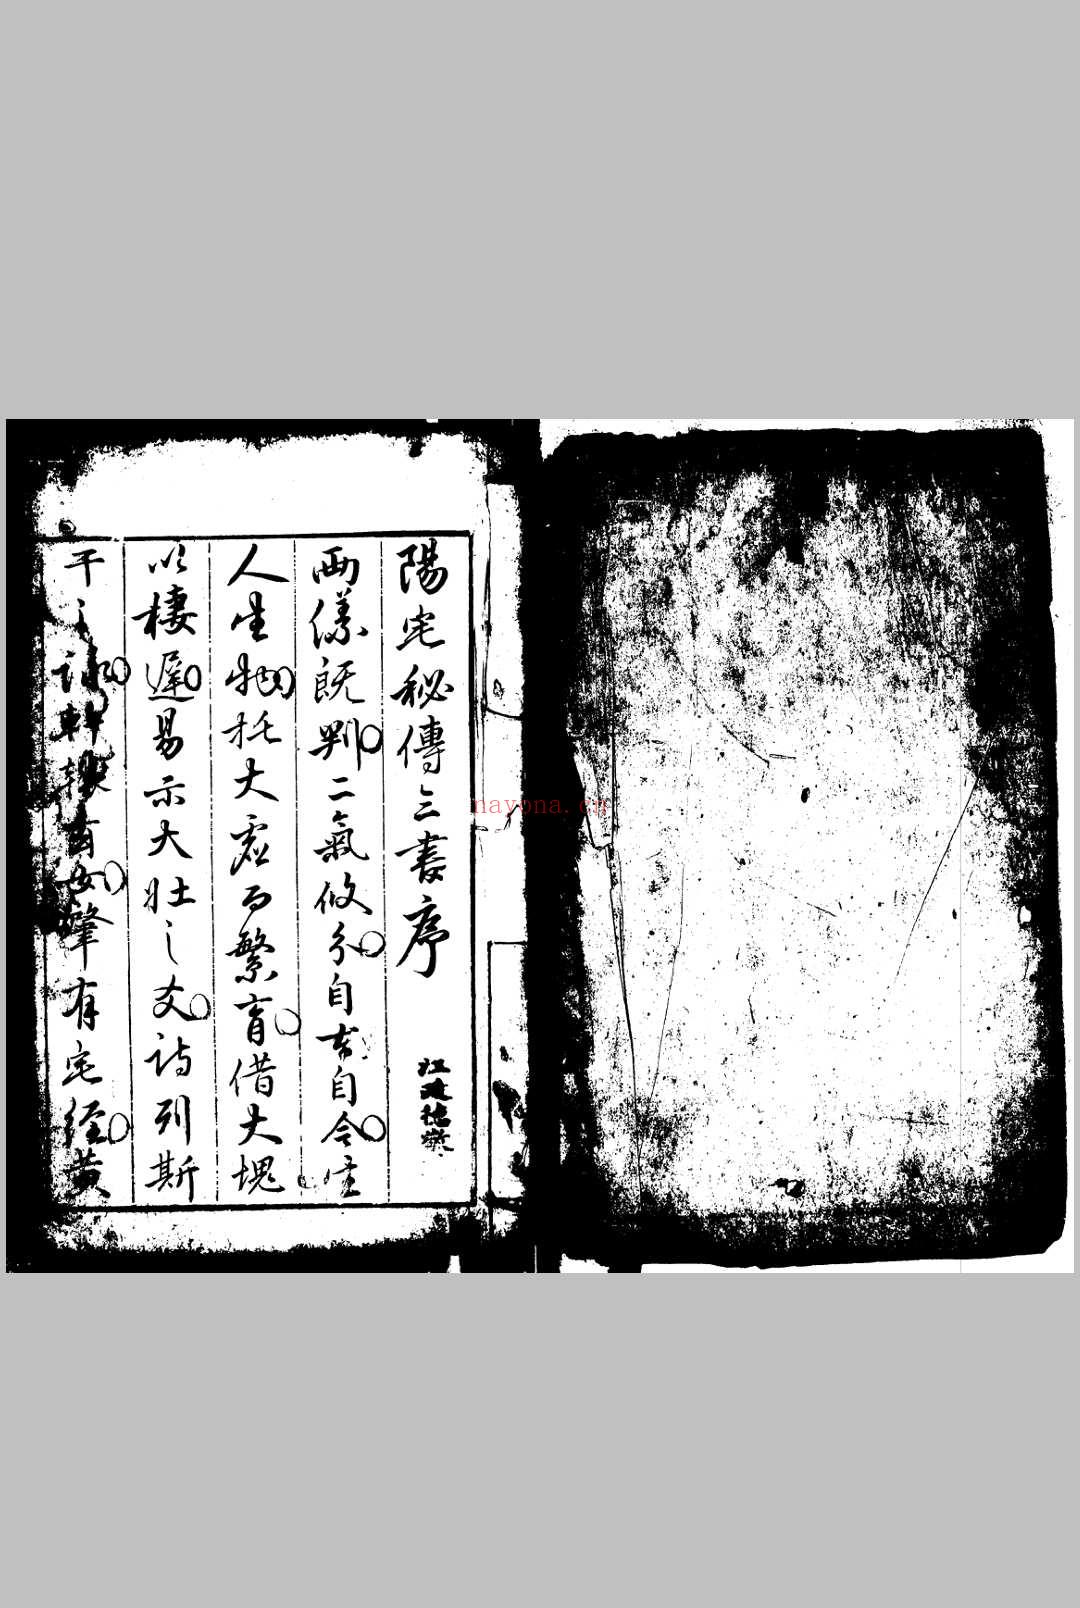 陽宅秘傳三書序
江
両儀既判二氣攸分自古自今生
人生物托大虛而繁育借大塊
以棲遲易示大壮之爻詩列斯
干之詠軒轅有女肇有宅經黄
nayona.cn